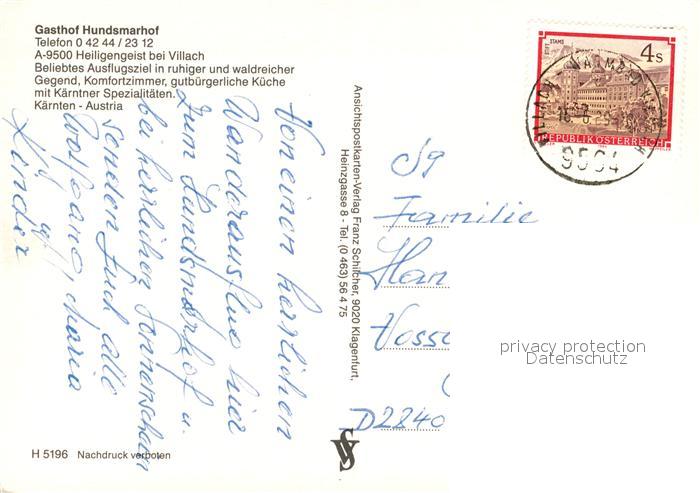 Gasthof Hundsmarhof
Telefon 0 42 44 / 23 12
A-9500 Heiligengeist bei Villach
Beliebtes Ausflugsziel in ruhiger und waldreicher
Gegend, Komfortzimmer, gutbürgerliche Küche
mit Kärntner Spezialitäten.
Kärnten - Austria
Von einen herrlichen
Wanderausflug hier
zum Hundsmarhof u.
bei herrlichen Sonnenschein
senden Euch alle
Wolfgang, Maria
Kinder
H 5196 Nachdruck verboten
Ansichtspostkarten-Verlag Franz Schilcher, 9020 Klagenfurt,
Heinzgasse 8 - Tel. (0 463) 56 4 75
STIFT STAMS
4 S
REPUBLIK ÖSTERREICH
VILLACH
9504
Familie
D2840
privacy protection
Datenschutz